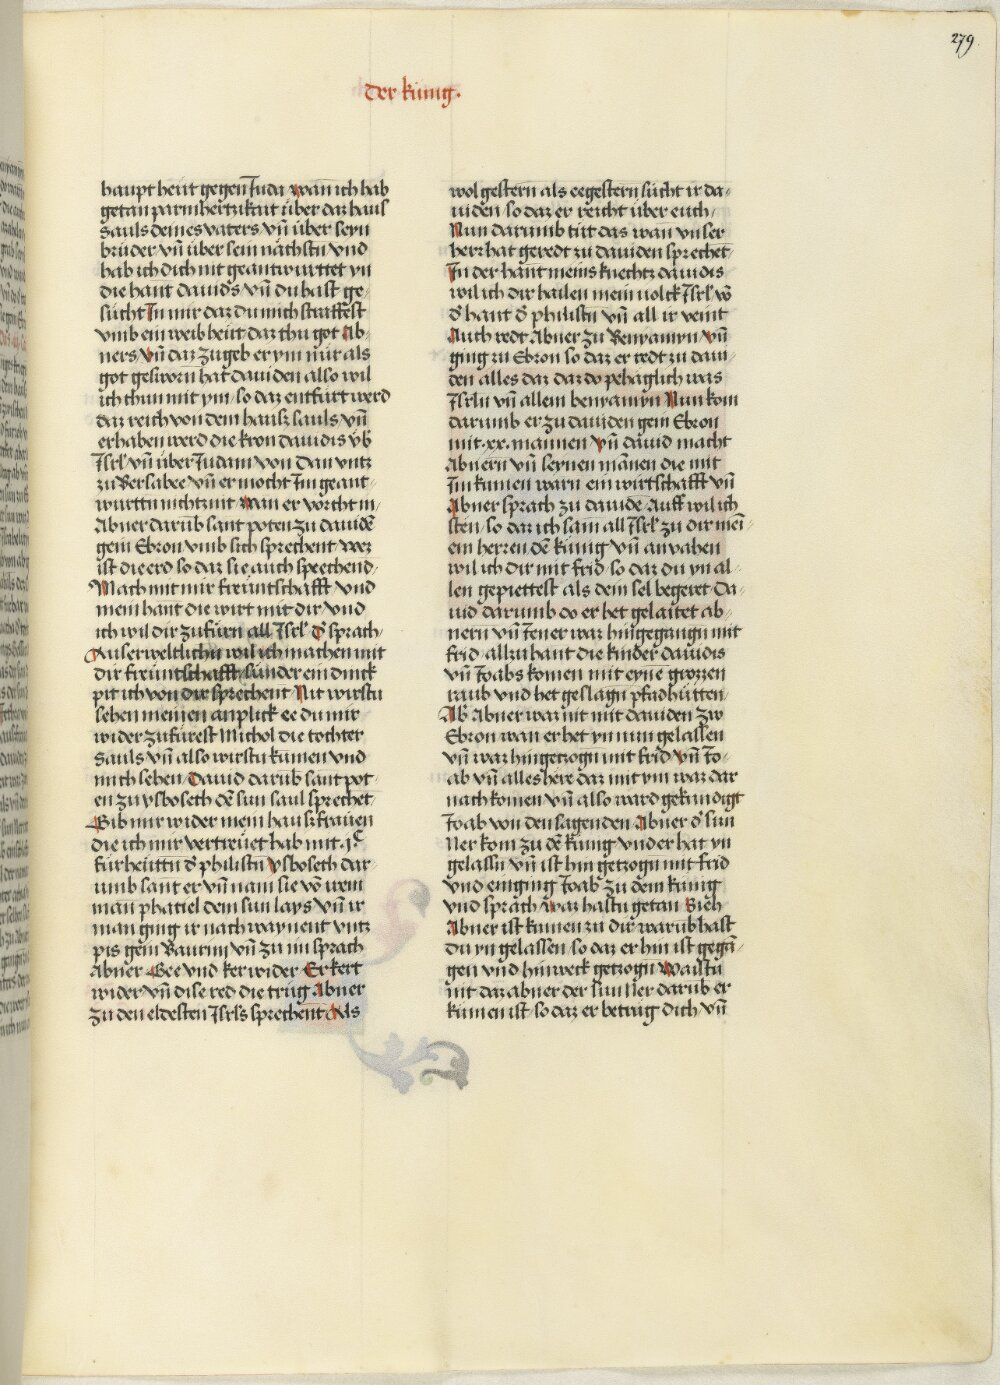 279
der künig.
haupt heüt gegen Juda wan ich hab
getan parmhertzikait über daz haus
sauls deines vaters vñ über seyn
brüder vñ über sein nächstn vnd
hab ich dich nit geantwurttet yn
die hant dauids vñ du hast ge-
sücht In mir daz du mich straffest
vmb ein weib heüt daz thu got Ab-
ners vñ daz zugeb er ym nür als
got gesworn hat dauiden also wil
ich thun mit ym so daz entfürt werd
daz reich von dem hausz sauls vñ
erhaben werd die kron dauidis üb̄
Isrl̄ vñ über Judam von Dan vntz
zu Bersabee vñ er mocht Im geant-
wurttn nichtznit wan er vörcht in
Abner darüb sant poten zu dauidē
gein Ebron vmb sich sprechent wez
ist die erd so daz sie auch sprechend
Mach mit mir freüntschafft vnd
mein hant die wirt mit dir vnd
ich wil dir zufürn all Isrl̄ d̄ sprach
Auserweltlichn wil ich machen mit
dir freüntschafft sunder ein dinck
pit ich von dir sprechent Nit wirstu
sehen meinen anplick ee du mir
wider zufürest Michol die tochter
sauls vñ also wirstu kumen vnd
mich sehen Dauid darüb sant pot-
en zu ysboseth dē sun saul sprechet
Gib mir wider mein hauszfrauen
die ich mir vertreüet hab mit .jc
fürheüttn d̄ philistn ysboseth dar-
umb sant er vñ nam sie vō irem
man phatiel dem sun lays vñ ir
man ging ir nach waynent vntz
pis gein Baurim vñ zu im sprach
Abner Gee vnd ker wider Er kert
wider vñ dise red die trug Abner
zu den eldesten Isrl̄s sprechent Als
wol gestern als eegestern sücht ir da-
uiden so daz er reicht über euch
Nun darumb tüt das wan vnser
herr hat geredt zu dauiden sprechet
In der hant meins knechtz dauidis
wil ich dir hailen mein volck Isrl̄ vō
d̄ hant d̄ philistn vñ all ir veint
Auch redt Abner zu Benyamyn vñ
ging zu Ebron so daz er redt zu daui-
den alles daz daz do pehaglich was
Isrln vñ allem benyamyn Nun kom
darumb er zu dauiden gem Ebron
mit .xx. mannen vñ dauid macht
Abnern vñ seynen mānen die mit
Im kumen warn ein wirtschafft vñ
Abner sprach zu dauidē Auff wil ich
sten so daz ich sam all Isrl̄ zu dir mei-
em herren dē künig vñ anvahen
wil ich dir mit frid so daz du yn al-
len gepiettest als dein sel begeret Da-
uid darumb do er het gelaitet ab-
nern vñ Jener waz hingegangn mit
frid allzuhant die kinder dauidis
vñ Joabs komen mit eyne grozzen
raub vnd het geslagn pfadhütten
Ab̄ Abner waz nit mit dauiden zw
Ebron wan er het yn nun gelassen
vñ waz hingetzogn mit frid vñ Jo-
ab vñ alles here daz mit ym waz daz
nach komen vñ also ward gekündigt
Joab von den sagenden Abner d̄ sun
Ner kom zu dē künig vnd er hat yn
gelassn vñ ist hin getzogn mit frid
vnd einging Joab zu dem künig
vnd sprach waz hastu getan Sich
Abner ist kumen zu dir warüb hast
du yn gelassen so daz er hin ist gegā-
gen vnd hinweck getzogn Waistu
nit daz abner der sun Ner darüb er
kumen ist so daz er betrüg dich vñ